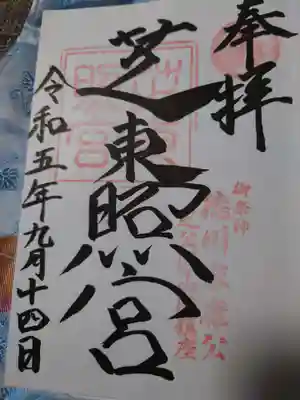 奉拝
芝東照宮
令和五年九月十四日
御祭神
徳川家康公